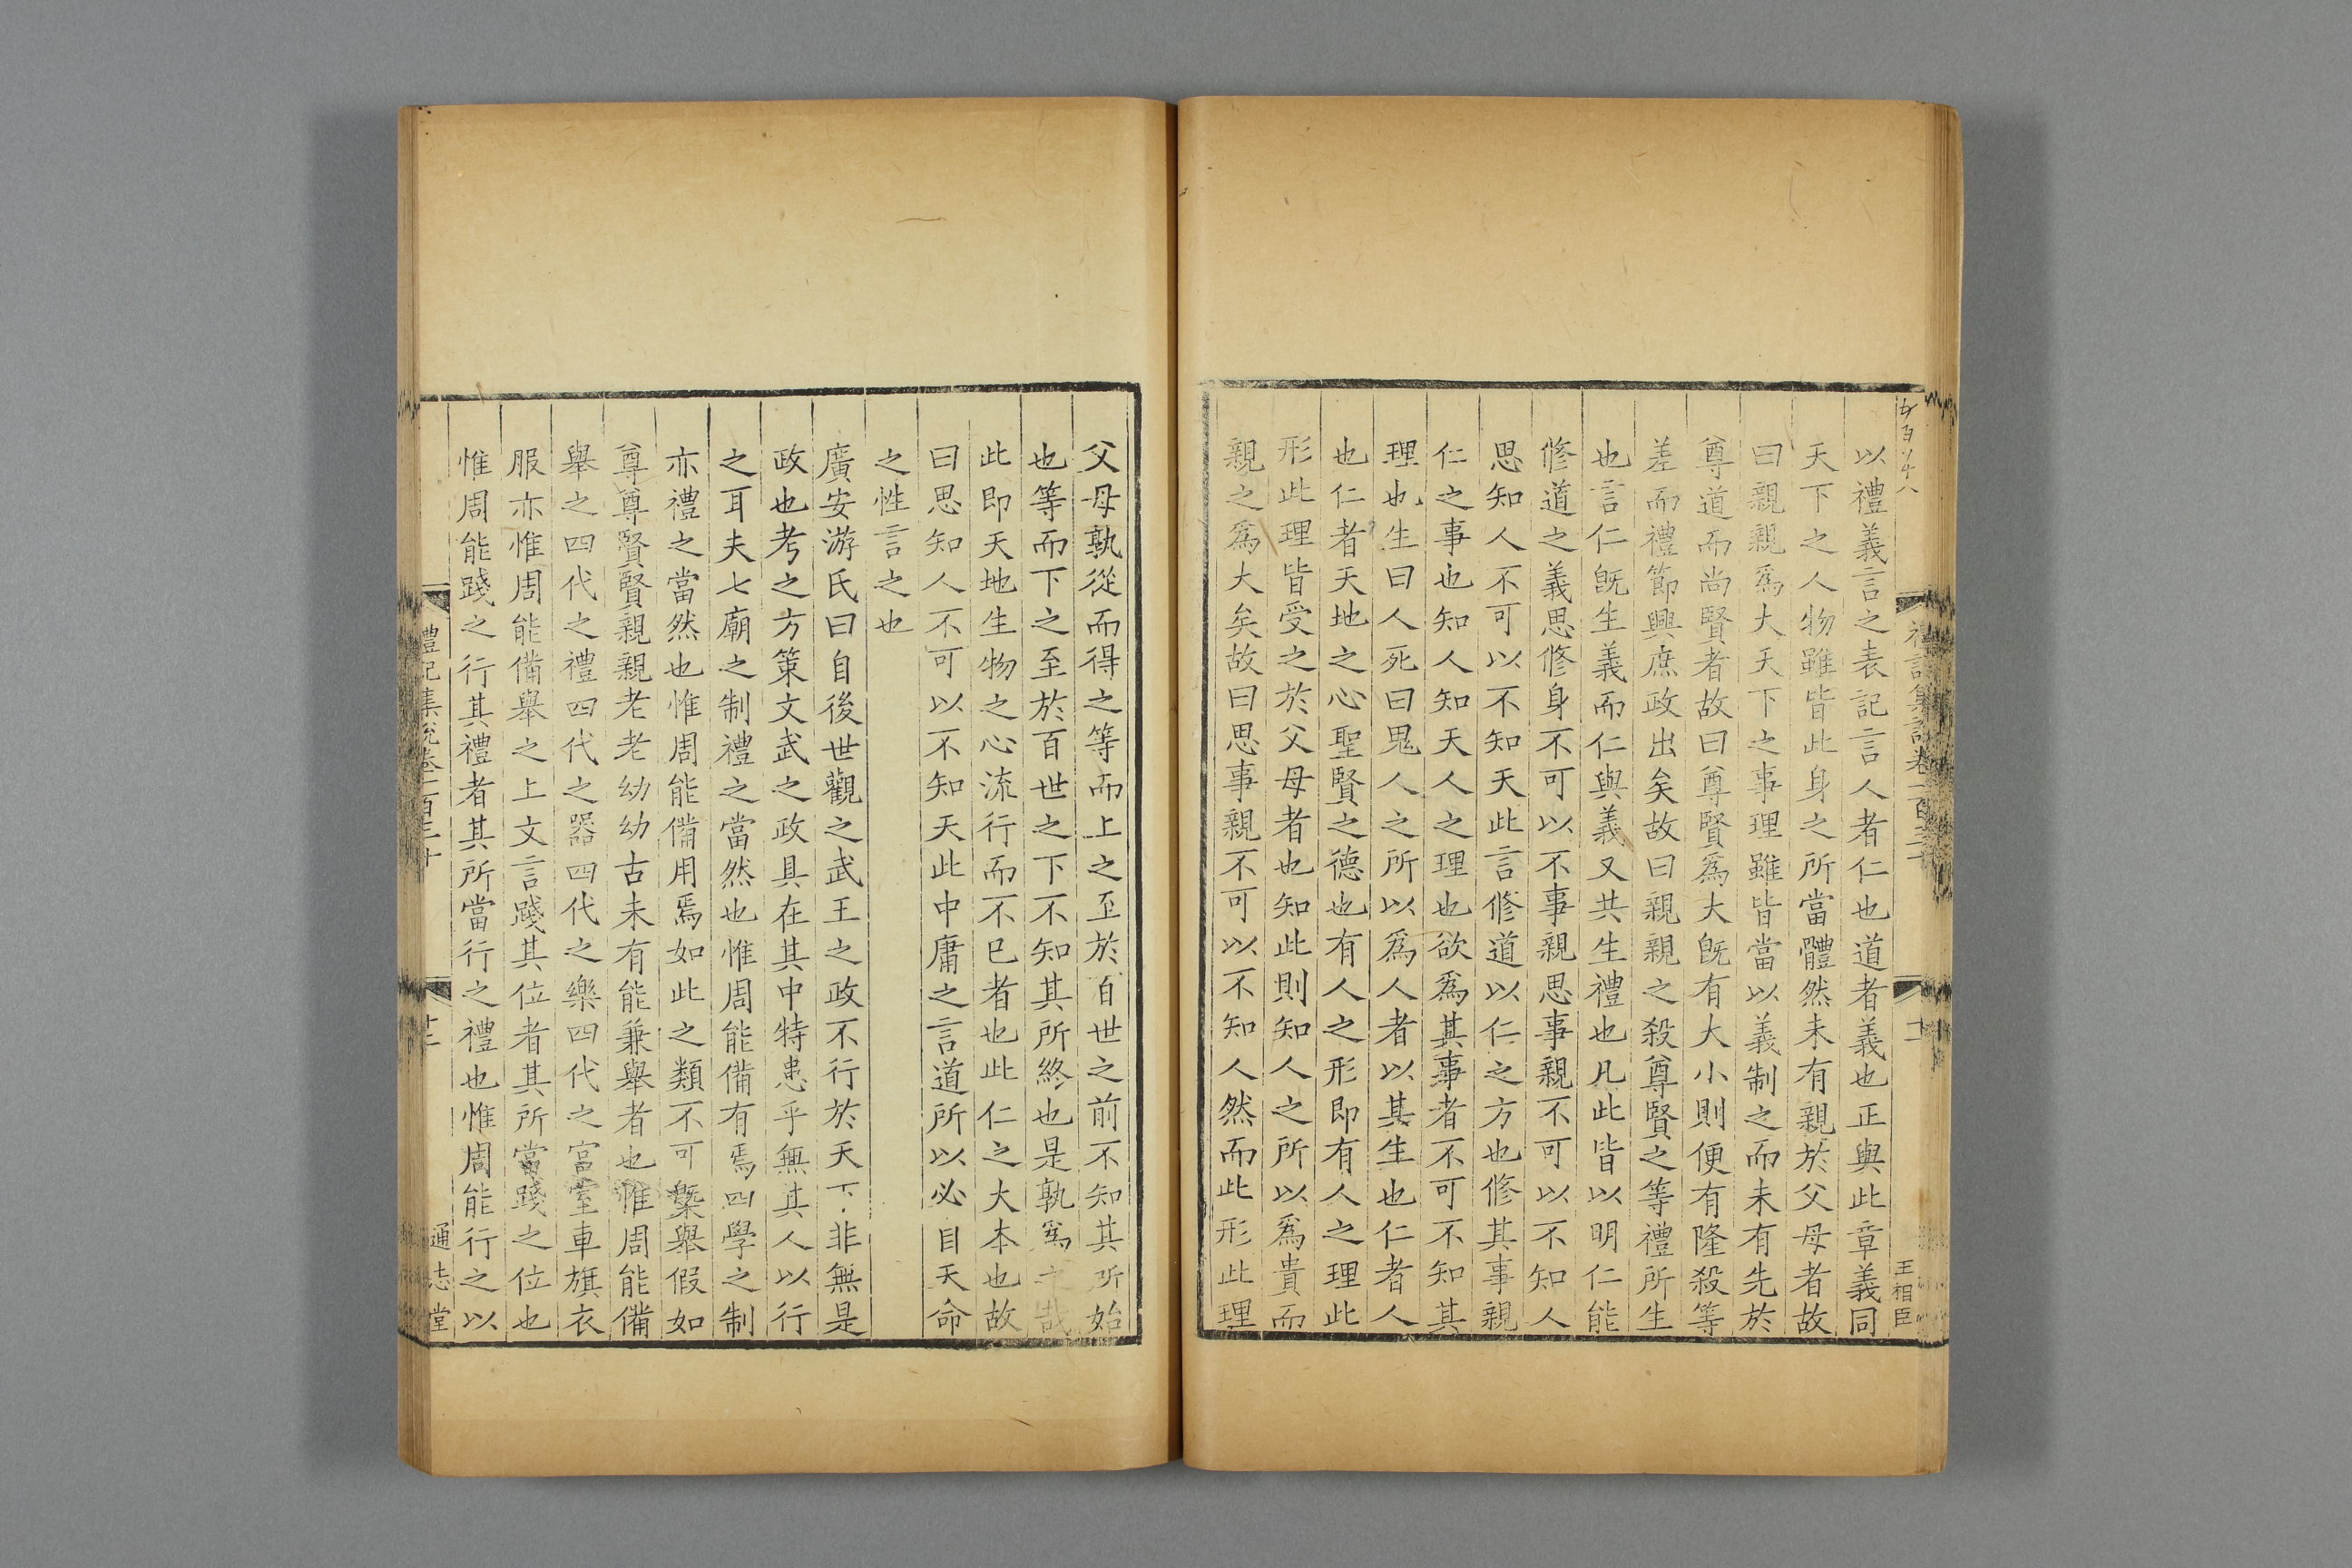 禮記集說卷一百三十
王相臣
以禮義言之表記言人者仁也道者義也正與此章義同
天下之人物雖皆此身之所當體然未有親於父母者故
曰親親爲大天下之事理雖皆當以義制之而未有先於
尊道而尚賢者故曰尊賢爲大旣有大小則便有隆殺等
差而禮節興庶政出矣故曰親親之殺尊賢之等禮所生
也言仁旣生義而仁與義又共生禮也凡此皆以明仁能
修道之義思修身不可以不事親思事親不可以不知人
思知人不可以不知天此言修道以仁之方也修其事親
仁之事也知人知天人之理也欲爲其事者不可不知其
理也生曰人死曰鬼人之所以爲人者以其生也仁者人
也仁者天地之心聖賢之德也有人之形即有人之理此
形此理皆受之於父母者也知此則知人之所以爲貴而
親之爲大矣故曰思事親不可以不知人然而此形此理
父母孰從而得之等而上之至於百世之前不知其所始
也等而下之至於百世之下不知其所終也是孰爲之哉
此即天地生物之心流行而不已者也此仁之大本也故
曰思知人不可以不知天此中庸之言道所以必目天命
之性言之也
廣安游氏曰自後世觀之武王之政不行於天下非無是
政也考之方策文武之政具在其中特患乎無其人以行
之耳夫七廟之制禮之當然也惟周能備有焉四學之制
亦禮之當然也惟周能備用焉如此之類不可槩舉假如
尊尊賢賢親親老老幼幼古未有能兼舉者也惟周能備
舉之四代之禮四代之器四代之樂四代之宮室車旗衣
服亦惟周能備舉之上文言踐其位者其所當踐之位也
惟周能踐之行其禮者其所當行之禮也惟周能行之以
禮記集說卷一百三十
通志堂